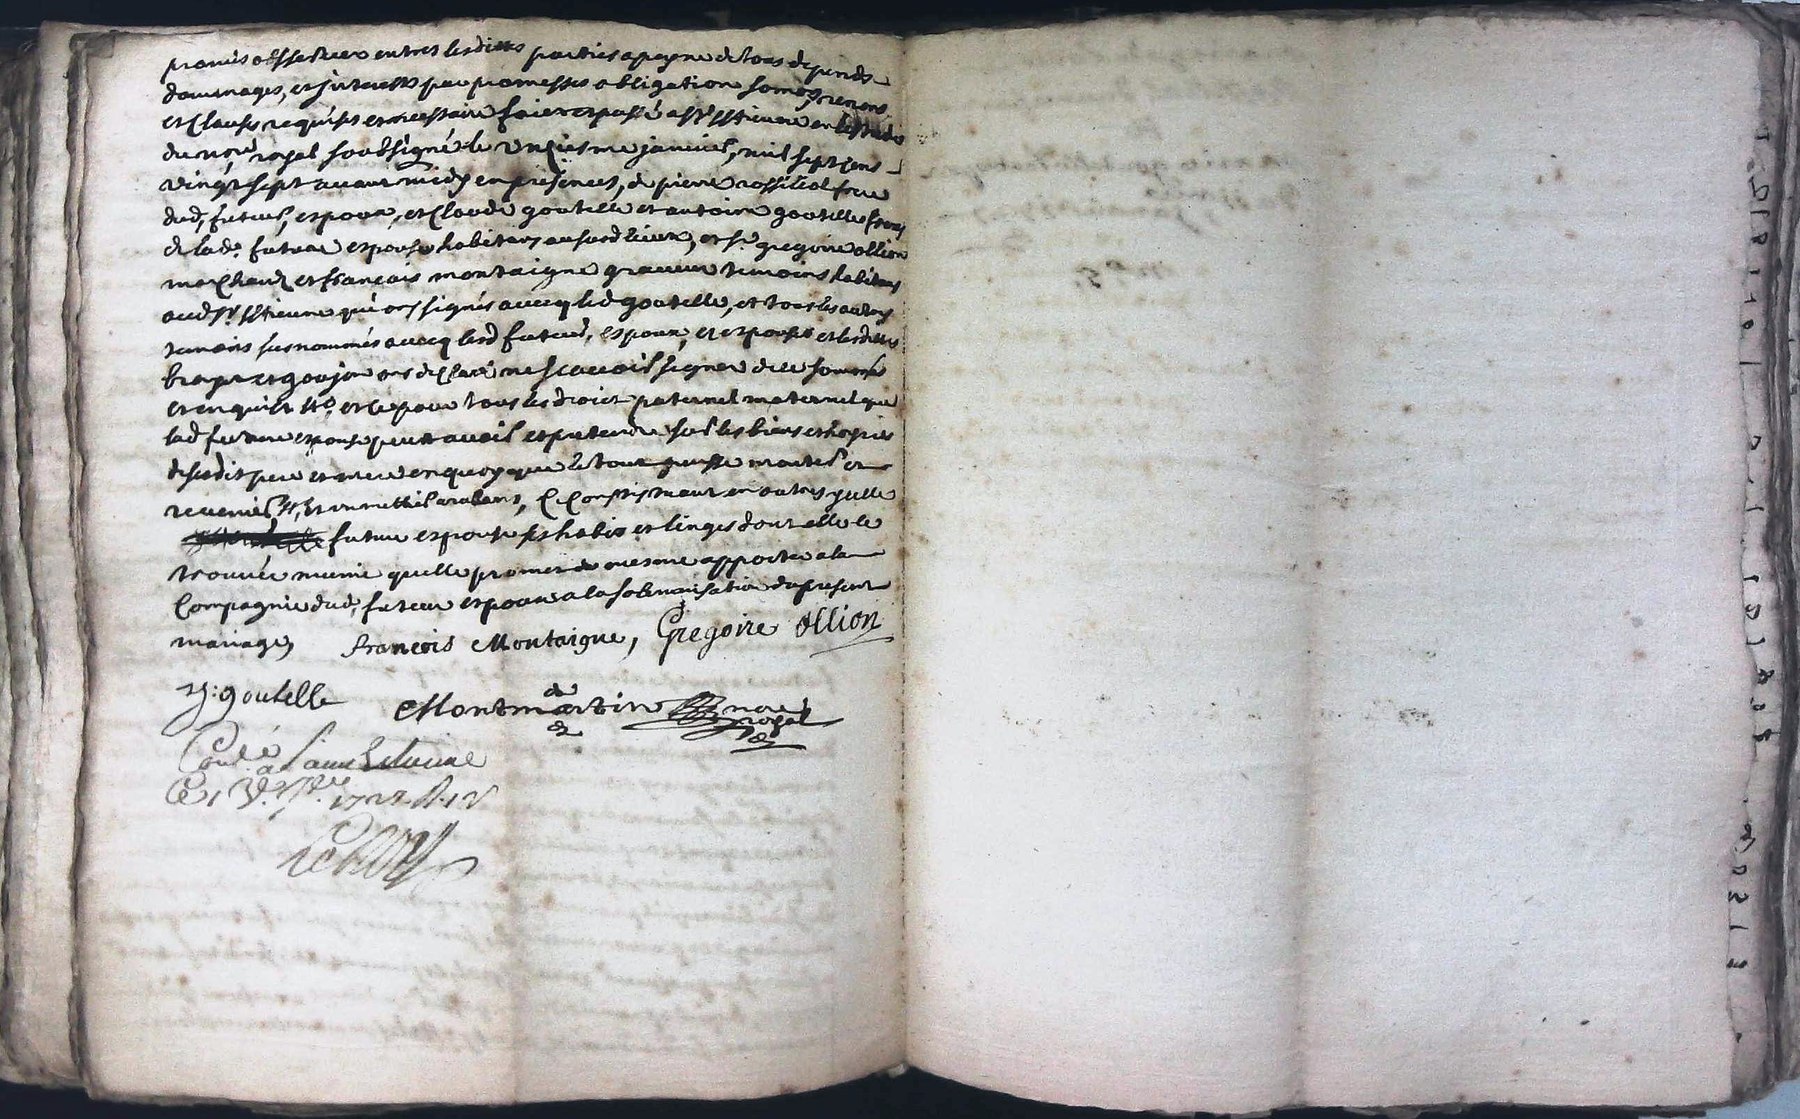 promis observer entres lesdittes parties a peyne de tous dépends
dommages, et jnterests par promesses obligation somōns renons
et Clauses requises et necessaire faict et passé a St Estienne en l'estude
du nore royal soubsigné le unziesme janvier, mil sept cens
vingt sept avant midy en présences, de pierre frere
dud, futeur, espoux, et Claude goutelle et antoine goutelle freres
de lade. future espouse habitans au susd lieux, et sr. gregoire ollion
marchand et françois montaigne graveur temoins habitans
aud St Estienne qui ont signés avecq led goutelle, et tous les autres
temoins susnommés avecq lesd futeurs, espoux, et espouse et lesdittes
et goujon ont déclaré ne scavoir signer de ce sommés
et enquist et ce pour tous les droict paternel maternel que
lad future espouse peut avoir et prétendre sur les biens et hoyries
desesdit pere et mere en quoy que le tout puisse monter et
revenir consistant en outres qu'elle
future espouse ses habis et linges dont elle se
trouvée munie quelle promet de mesme apporter a la
Compagnie dud, futeur espoux a la solemnisation du présent
mariage, françois Montaigne, Gregoire Ollion
goutelle Montmartin nore
royal
Conlé a Saint Estienne
Ce 1727